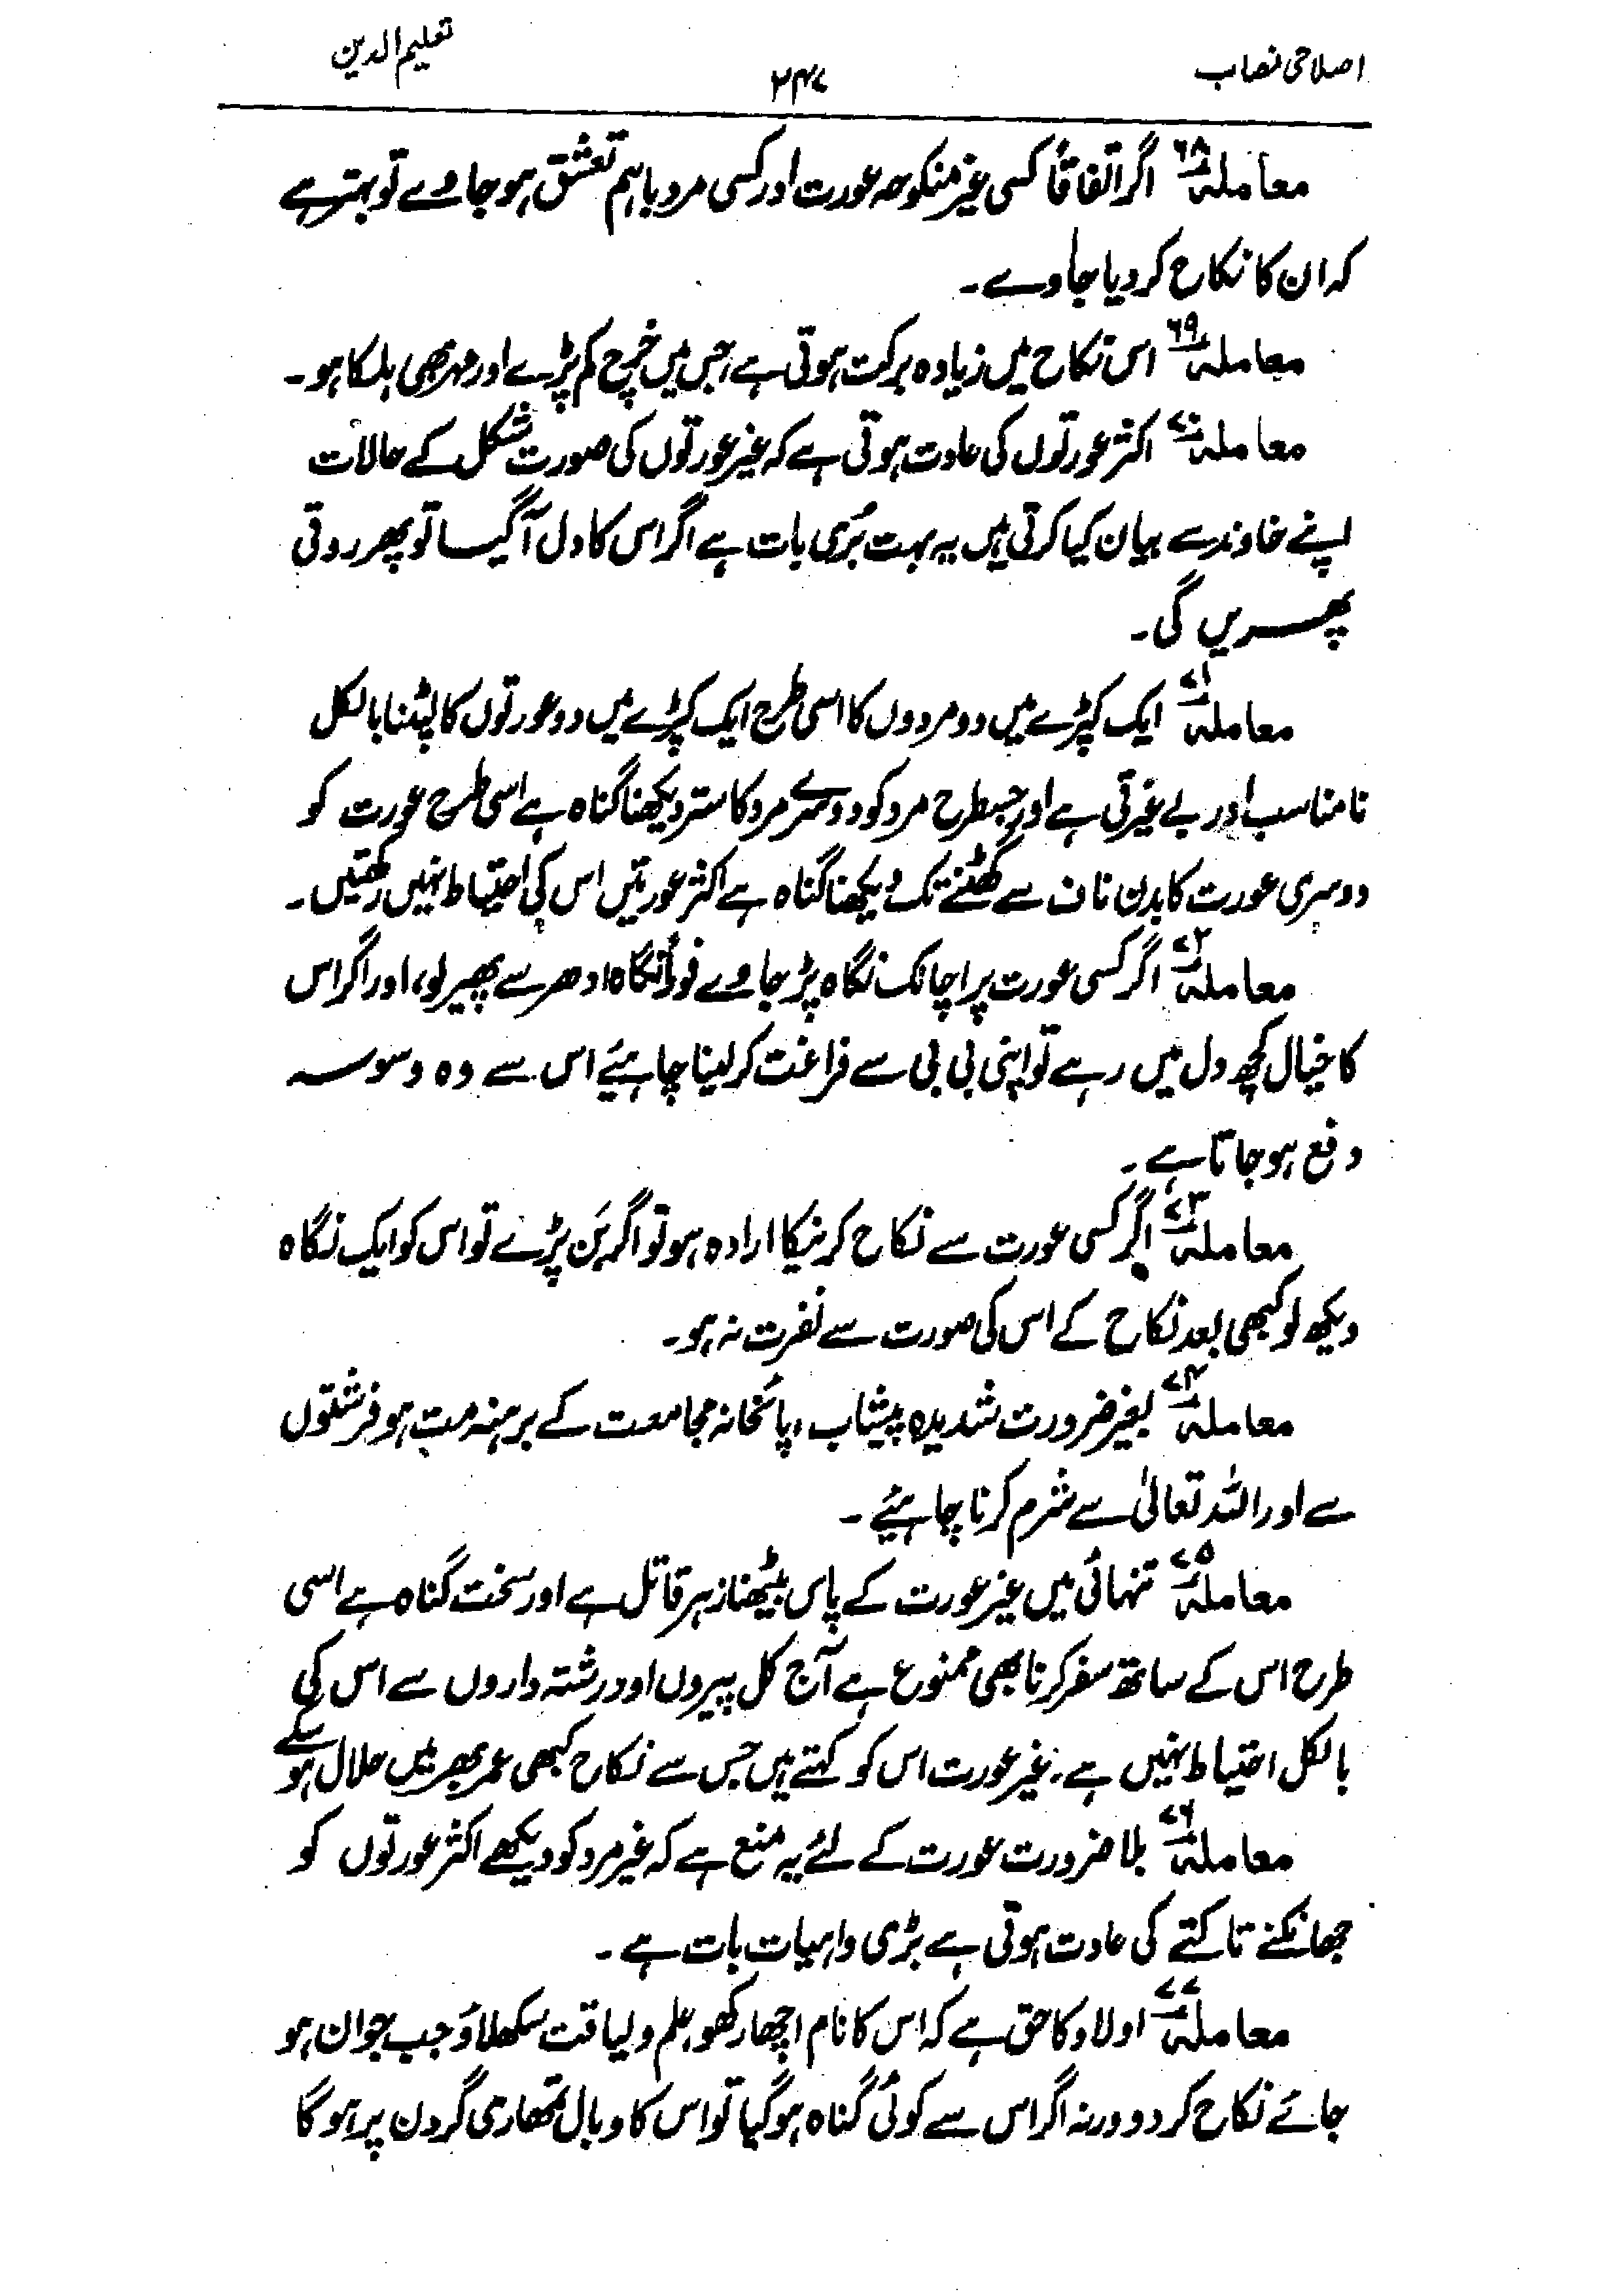 اصلاحی نصاب
۲۴۷
تعلیم الدین
معاملہ ۶۸ اگر اتفاقاً کسی غیر منکوحہ عورت اور کسی مرد باہم تعشق ہو جاوے تو بہتر ہے
کہ ان کا نکاح کر دیا جاوے۔
معاملہ ۶۹ اس نکاح میں زیادہ برکت ہوتی ہے، جس میں خرچ کم پڑے اور مہر بھی ہلکا ہو۔
معاملہ ۷۰ اکثر عورتوں کی عادت ہوتی ہے کہ غیر عورتوں کی صورت شکل کے حالات
اپنے خاوند سے بیان کیا کرتی ہیں یہ بہت بُری بات ہے اگر اس کا دل آ گیا تو پھر روتی
پھریں گی۔
معاملہ ۷۱ ایک کپڑے میں دو مردوں کا اسی طرح ایک کپڑے میں دو عورتوں کا لپٹنا بالکل
نامناسب اور بے غیرتی ہے اور جسطرح مرد کو دوسرے مرد کا ستر دیکھنا گناہ ہے اسی طرح عورت کو
دوسری عورت کا بدن ناف سے گھٹنے تک دیکھنا گناہ ہے اکثر عورتیں اس کی احتیاط نہیں رکھتیں۔
معاملہ ۷۲ اگر کسی عورت پر اچانک نگاہ پڑ جاوے فوراً نگاہ ادھر سے پھیر لو، اور اگر اس
کا خیال کچھ دل میں رہے تو اپنی بی بی سے فراغت کر لینا چاہئیے اس سے وہ وسوسہ
دفع ہو جاتا ہے۔
معاملہ ۷۳ اگر کسی عورت سے نکاح کرنیکا ارادہ ہو تو اگر بَن پڑے تو اس کو ایک نگاہ
دیکھ لو کبھی بعد نکاح کے اس کی صورت سے نفرت نہ ہو۔
معاملہ ۷۴ بغیر ضرورت شدیدہ پیشاب، پائخانہ مجامعت کے برہنہ مت ہو فرشتوں
سے اور اللہ تعالیٰ سے شرم کرنا چاہئیے۔
معاملہ ۷۵ تنہائی میں غیر عورت کے پاس بیٹھنا زہر قاتل ہے اور سخت گناہ ہے اسی
طرح اس کے ساتھ سفر کرنا بھی ممنوع ہے آج کل پیروں اور رشتہ داروں سے اس کی
بالکل احتیاط نہیں ہے، غیر عورت اس کو کہتے ہیں جس سے نکاح کبھی عمر بھر میں حلال ہو سکے
معاملہ ۷۶ بلا ضرورت عورت کے لئے یہ منع ہے کہ غیر مرد کو دیکھے اکثر عورتوں کو
جھانکنے تاکنے کی عادت ہوتی ہے بڑی واہیات بات ہے۔
معاملہ ۷۷ اولاد کا حق ہے کہ اس کا نام اچھا رکھو، علم و لیاقت سکھلاؤ جب جوان ہو
جائے نکاح کر دو ورنہ اگر اس سے کوئی گناہ ہو گیا تو اس کا وبال تمھاری گردن پر ہو گا